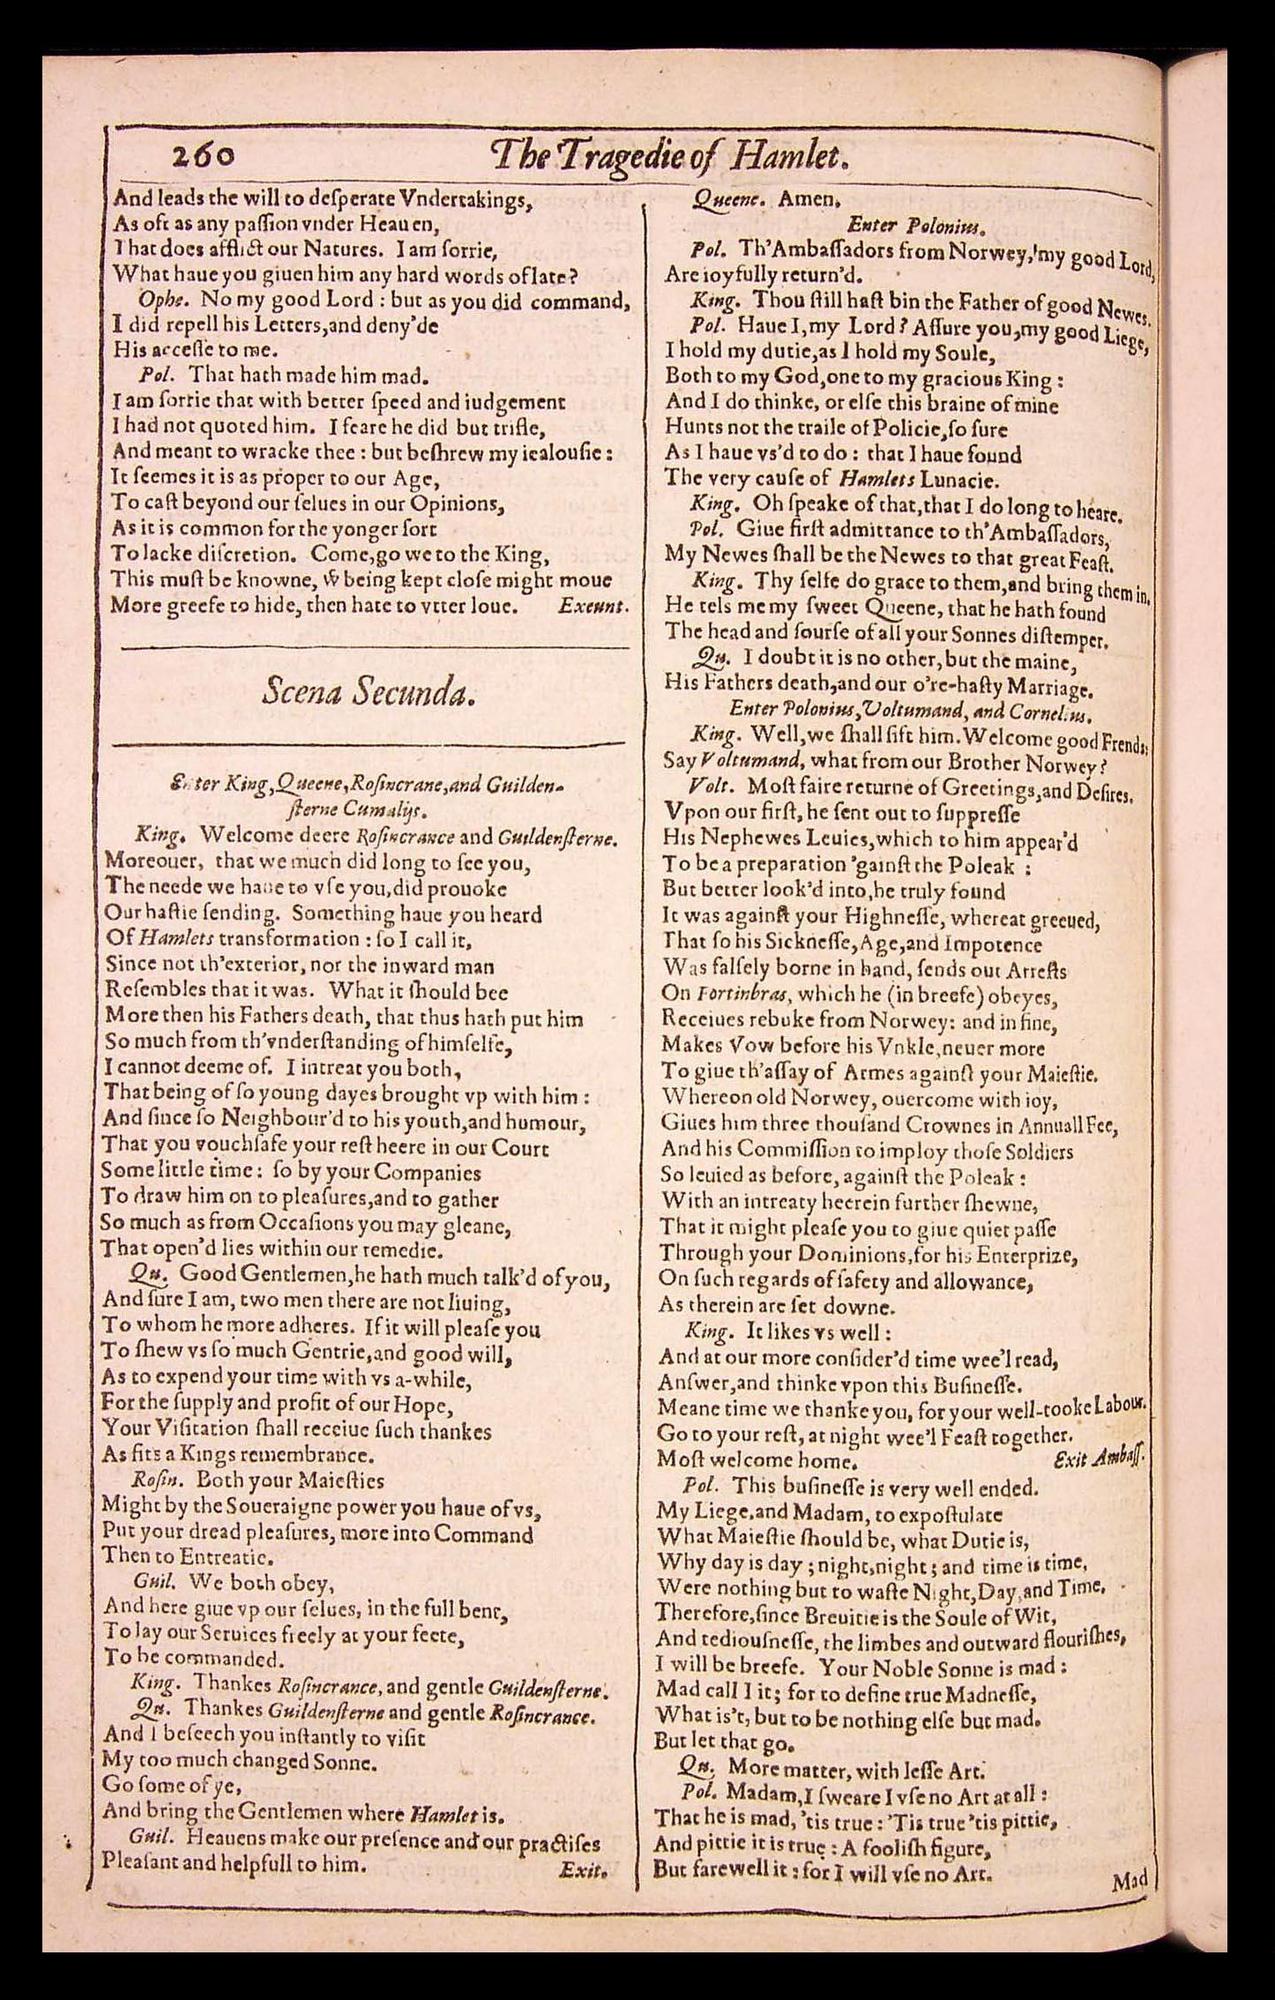 260
The Tragedie of Hamlet.
And leads the will to deſperate Vndertakings,
As oft as any paſſion vnder Heauen,
That does afflict our Natures. I am ſorrie,
What haue you giuen him any hard words of late?
Ophe. No my good Lord : but as you did command,
I did repell his Letters, and deny'de
His acceſſe to me.
Pol. That hath made him mad.
I am ſorrie that with better ſpeed and iudgement
I had not quoted him. I feare he did but trifle,
And meant to wracke thee : but beſhrew my iealouſie :
It ſeemes it is as proper to our Age,
To caſt beyond our ſelues in our Opinions,
As it is common for the yonger ſort
To lacke diſcretion. Come, go we to the King,
This muſt be knowne, & being kept cloſe might moue
More greefe to hide, then hate to vtter loue. Exeunt.
Scena Secunda.
Enter King, Queene, Roſincrane, and Guilden-
ſterne Cumalijs.
King. Welcome deere Roſincrance and Guildenſterne.
Moreouer, that we much did long to ſee you,
The neede we haue to vſe you, did prouoke
Our haſtie ſending. Something haue you heard
Of Hamlets transformation : ſo I call it,
Since not th'exterior, nor the inward man
Reſembles that it was. What it ſhould bee
More then his Fathers death, that thus hath put him
So much from th'vnderſtanding of himſelfe,
I cannot deeme of. I intreat you both,
That being of ſo young dayes brought vp with him :
And ſince ſo Neighbour'd to his youth, and humour,
That you vouchſafe your reſt heere in our Court
Some little time : ſo by your Companies
To draw him on to pleaſures, and to gather
So much as from Occaſions you may gleane,
That open'd lies within our remedie.
Qu. Good Gentlemen, he hath much talk'd of you,
And ſure I am, two men there are not liuing,
To whom he more adheres. If it will pleaſe you
To ſhew vs ſo much Gentrie, and good will,
As to expend your time with vs a-while,
For the ſupply and profit of our Hope,
Your Viſitation ſhall receiue ſuch thankes
As fits a Kings remembrance.
Roſin. Both your Maieſties
Might by the Soueraigne power you haue of vs,
Put your dread pleaſures, more into Command
Then to Entreatie.
Guil. We both obey,
And here giue vp our ſelues, in the full bent,
To lay our Seruices freely at your feete,
To be commanded.
King. Thankes Roſincrance, and gentle Guildenſterne.
Qu. Thankes Guildenſterne and gentle Roſincrance.
And I beſeech you inſtantly to viſit
My too much changed Sonne.
Go ſome of ye,
And bring the Gentlemen where Hamlet is.
Guil. Heauens make our preſence and our practiſes
Pleaſant and helpfull to him. Exit.
Queene. Amen.
Enter Polonius.
Pol. Th'Ambaſſadors from Norwey, my good Lord,
Are ioyfully return'd.
King. Thou ſtill haſt bin the Father of good Newes.
Pol. Haue I, my Lord? Aſſure you, my good Liege,
I hold my dutie, as I hold my Soule,
Both to my God, one to my gracious King :
And I do thinke, or elſe this braine of mine
Hunts not the traile of Policie, ſo ſure
As I haue vs'd to do : that I haue found
The very cauſe of Hamlets Lunacie.
King. Oh ſpeake of that, that I do long to heare.
Pol. Giue firſt admittance to th'Ambaſſadors,
My Newes ſhall be the Newes to that great Feaſt.
King. Thy ſelfe do grace to them, and bring them in.
He tels me my ſweet Queene, that he hath found
The head and ſourſe of all your Sonnes diſtemper.
Qu. I doubt it is no other, but the maine,
His Fathers death, and our o're-haſty Marriage.
Enter Polonius, Voltumand, and Cornelius.
King. Well, we ſhall ſift him. Welcome good Frends:
Say Voltumand, what from our Brother Norwey?
Volt. Moſt faire returne of Greetings, and Deſires.
Vpon our firſt, he ſent out to ſuppreſſe
His Nephewes Leuies, which to him appear'd
To be a preparation 'gainſt the Poleak :
But better look'd into, he truly found
It was againſt your Highneſſe, whereat greeued,
That ſo his Sickneſſe, Age, and Impotence
Was falſely borne in hand, ſends out Arreſts
On Fortinbras, which he (in breefe) obeyes,
Receiues rebuke from Norwey: and in fine,
Makes Vow before his Vnkle, neuer more
To giue th'aſſay of Armes againſt your Maieſtie.
Whereon old Norwey, ouercome with ioy,
Giues him three thouſand Crownes in Annuall Fee,
And his Commiſſion to imploy thoſe Soldiers
So leuied as before, againſt the Poleak :
With an intreaty heerein further ſhewne,
That it might pleaſe you to giue quiet paſſe
Through your Dominions, for his Enterprize,
On ſuch regards of ſafety and allowance,
As therein are ſet downe.
King. It likes vs well :
And at our more conſider'd time wee'l read,
Anſwer, and thinke vpon this Buſineſſe.
Meane time we thanke you, for your well-tooke Labour.
Go to your reſt, at night wee'l Feaſt together.
Moſt welcome home. Exit Ambaſſ.
Pol. This buſineſſe is very well ended.
My Liege, and Madam, to expoſtulate
What Maieſtie ſhould be, what Dutie is,
Why day is day ; night, night ; and time is time,
Were nothing but to waſte Night, Day, and Time.
Therefore, ſince Breuitie is the Soule of Wit,
And tediouſneſſe, the limbes and outward flouriſhes,
I will be breefe. Your Noble Sonne is mad :
Mad call I it ; for to define true Madneſſe,
What is't, but to be nothing elſe but mad.
But let that go.
Qu. More matter, with leſſe Art.
Pol. Madam, I ſweare I vſe no Art at all :
That he is mad, 'tis true : 'Tis true 'tis pittie,
And pittie it is true : A fooliſh figure,
But farewell it : for I will vſe no Art.
Mad